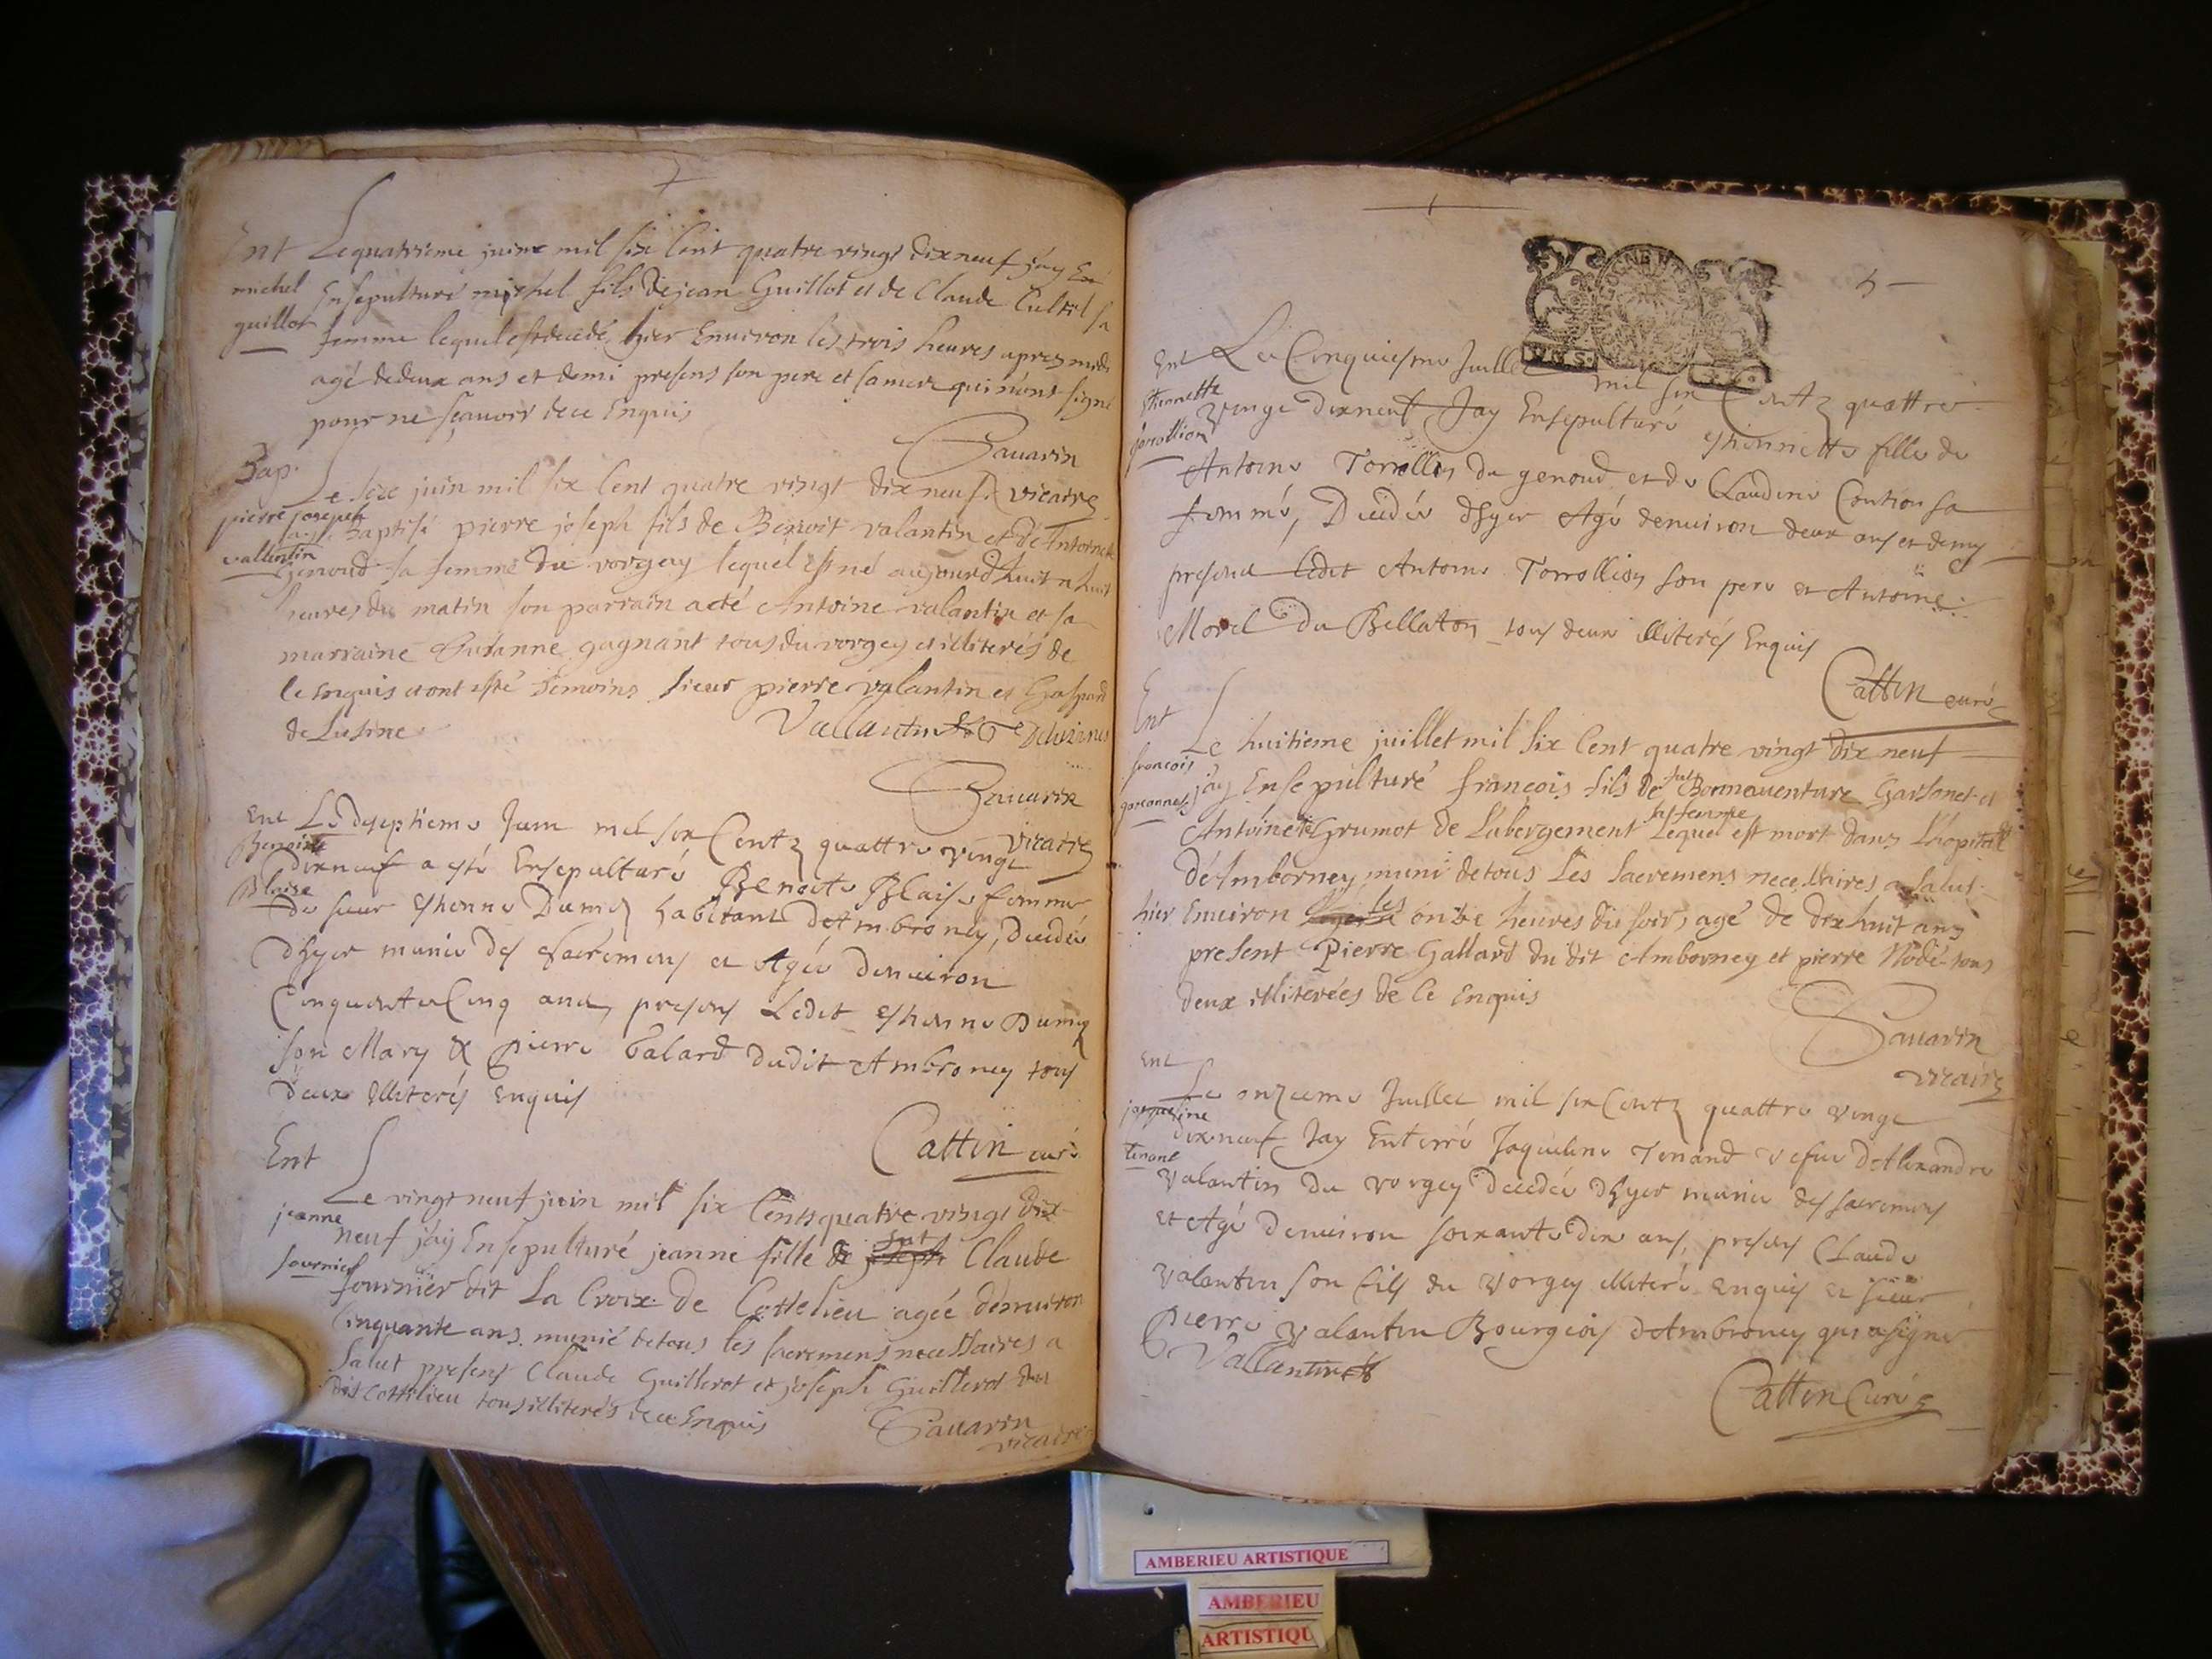 Ent
michel
guillot
Lequatrieme juin mil six Cent quatre vingt dixneuf j'ay
Ensepulturé michel fils de jean Guillot et de Claude Cultil sa
femme lequel est decedé hier Environ les trois heures apres midi
agé de deux ans et demi presens son pere et sa mere qui n'ont signé
pour ne sçauoir de ce Enquis
Sauarin
vicaire
Bap.
pierre joseph
vallentin
Le seze juin mil six Cent quatre vingt dix neuf
j'ay Baptisé pierre joseph fils de Benoit valantin et de Antoinette
Genoud sa femme du vorgey lequel est né aujourd'huit a huit
heures du matin son parrain a eté Antoine valantin et sa
marraine Susanne gagnant tous du vorgey et illiterés de
ce enquis et ont esté temoins sieur pierre valantin et Gaspard
de Lusine
Vallantin
Sauarin
vicaire
Ent
Benoite
Blaise
Le dixseptieme Juin mil six Centz quattre vingt
dixneuf a esté Ensepulturé Benoite Blaise femme
de sieur Estienne Dumez habitant d'Ambroney, decedée
d'hyer munie des sacremens et Agée denuiron
Cinquante Cinq ans, presens Ledit Estienne Dumez
son Mary & pierre Galard dudit Ambroney tous
deux illiterés enquis
Cattin curé
Ent
jeanne
fournier
Le vingt neuf juin mil six Cents quatre vingt dix
neuf j'ay Ensepulturé jeanne fille de fut Claude
fournier dit La Croix de Cottelieu agée denuiron
Cinquante ans munie de tous les sacremens necessaires a
salut presens Claude Guillerot et joseph Guillerot du
dit cottelieu tous illiterés de ce Enquis
Sauarin
vicaire
5
Ent
Etiennette
torrollion
Le Cinquiesme Juillet mil six Centz quattre
vingt dixneuf Jay Ensepulturé Estiennette fille de
Antoine Torrollion du genoud et de Claudine Coution sa
femme, Decedée d'hyer Agé denuiron deux ans et demy
presens ledit Antoine Torrollion son pere et Antoine
Morel du Bellaton tous deux illiterés Enquis
Cattin curé
Ent
francois
garconnet
Le huitieme juillet mil six Cent quatre vingt dix neuf
j'ay Ensepulturé françois fils de fut Bonnauenture Garsonet et
Antoinette Grumot de L'abergement sa femme Lequel est mort dans L'hopital
d'Amborney muni de tous Les Sacremens necessaires a salut
hier Environ les onze heures du soir, agé de dix huit ans
present Pierre Gallard du dit Amborney et pierre Nodé tous
deux illiterées de ce Enquis
Sauarin
vicaire
Ent
jaqueline
tenant
Le onzieme Juillet mil six Centz quattre vingt
dixneuf Jay Enterré Jaqueline Tenand vefue d'Alexandre
Valantin du vorgey decedée d'hyer munie des sacremens
et Agé denuiron soixante dix ans, presens Claude
Valantin son fils du Vorgey illiteré enquis et sieur
Pierre Valantin Bourgeois d'Ambroney qui a signé
Vallantin
Cattin Curé
AMBERIEU ARTISTIQUE
AMBERIEU
ARTISTIQU